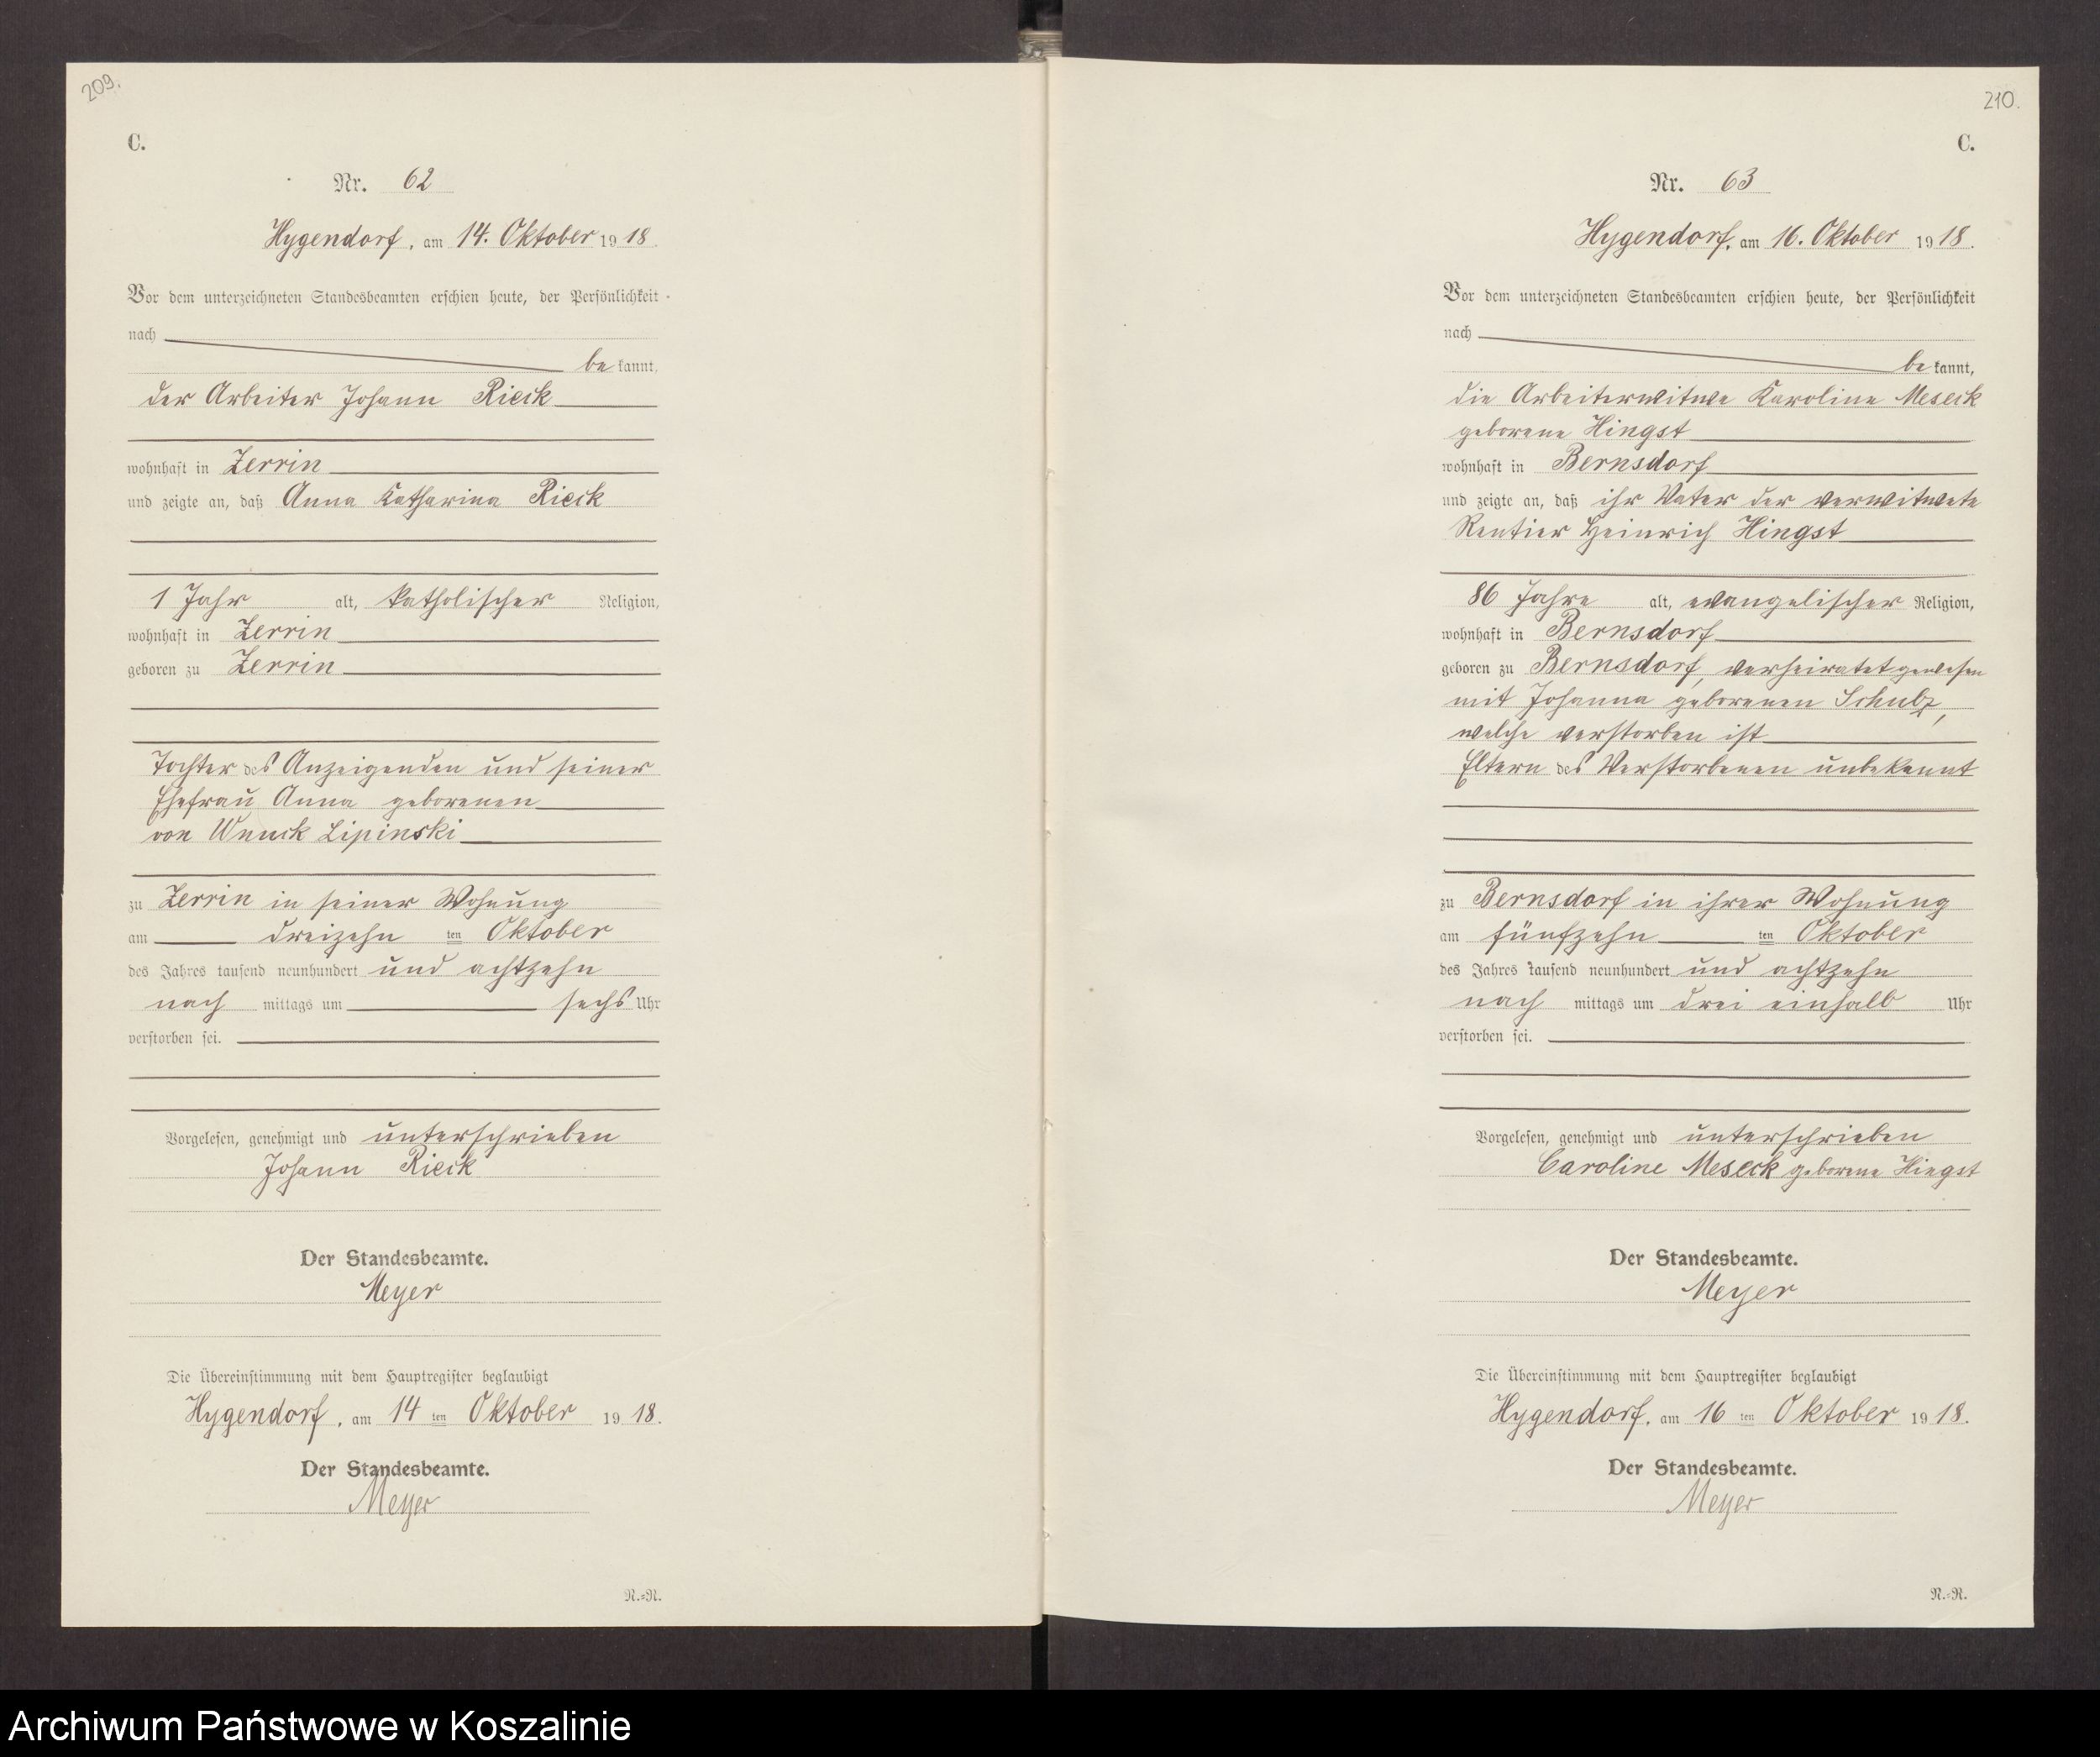 209.
C.
Nr. 62
Hygendorf, am 14. Oktober 1918.
Vor dem unterzeichneten Standesbeamten erschien heute, der Persönlichkeit
nach
be kannt,
der Arbeiter Johann Rieck
wohnhaft in Zerrin
und zeigte an, daß Anna Katharina Rieck
1 Jahr alt, katholischer Religion,
wohnhaft in Zerrin
geboren zu Zerrin
Tochter des Anzeigenden und seiner
Ehefrau Anna geborenen
von Wnuck Lipinski
zu Zerrin in seiner Wohnung
am dreizehn ten Oktober
des Jahres tausend neunhundert und achtzehn
nach mittags um sechs Uhr
verstorben sei.
Vorgelesen, genehmigt und unterschrieben
Johann Rieck
Der Standesbeamte.
Meyer
Die Übereinstimmung mit dem Hauptregister beglaubigt
Hygendorf, am 14 ten Oktober 1918.
Der Standesbeamte.
Meyer
N.=R.
210.
C.
Nr. 63
Hygendorf, am 16. Oktober 1918.
Vor dem unterzeichneten Standesbeamten erschien heute, der Persönlichkeit
nach
be kannt,
die Arbeiterwitwe Karoline Meseck
geborene Hingst
wohnhaft in Bernsdorf
und zeigte an, daß ihr Vater der verwitwete
Rentier Heinrich Hingst
86 Jahre alt, evangelischer Religion,
wohnhaft in Bernsdorf
geboren zu Bernsdorf, verheiratet gewesen
mit Johanna geborenen Schulz,
welche verstorben ist
Eltern des Verstorbenen unbekannt
zu Bernsdorf in ihrer Wohnung
am fünfzehn ten Oktober
des Jahres tausend neunhundert und achtzehn
nach mittags um drei einhalb Uhr
verstorben sei.
Vorgelesen, genehmigt und unterschrieben
Caroline Meseck geborene Hingst
Der Standesbeamte.
Meyer
Die Übereinstimmung mit dem Hauptregister beglaubigt
Hygendorf, am 16 ten Oktober 1918.
Der Standesbeamte.
Meyer
N.=R.
Archiwum Państwowe w Koszalinie